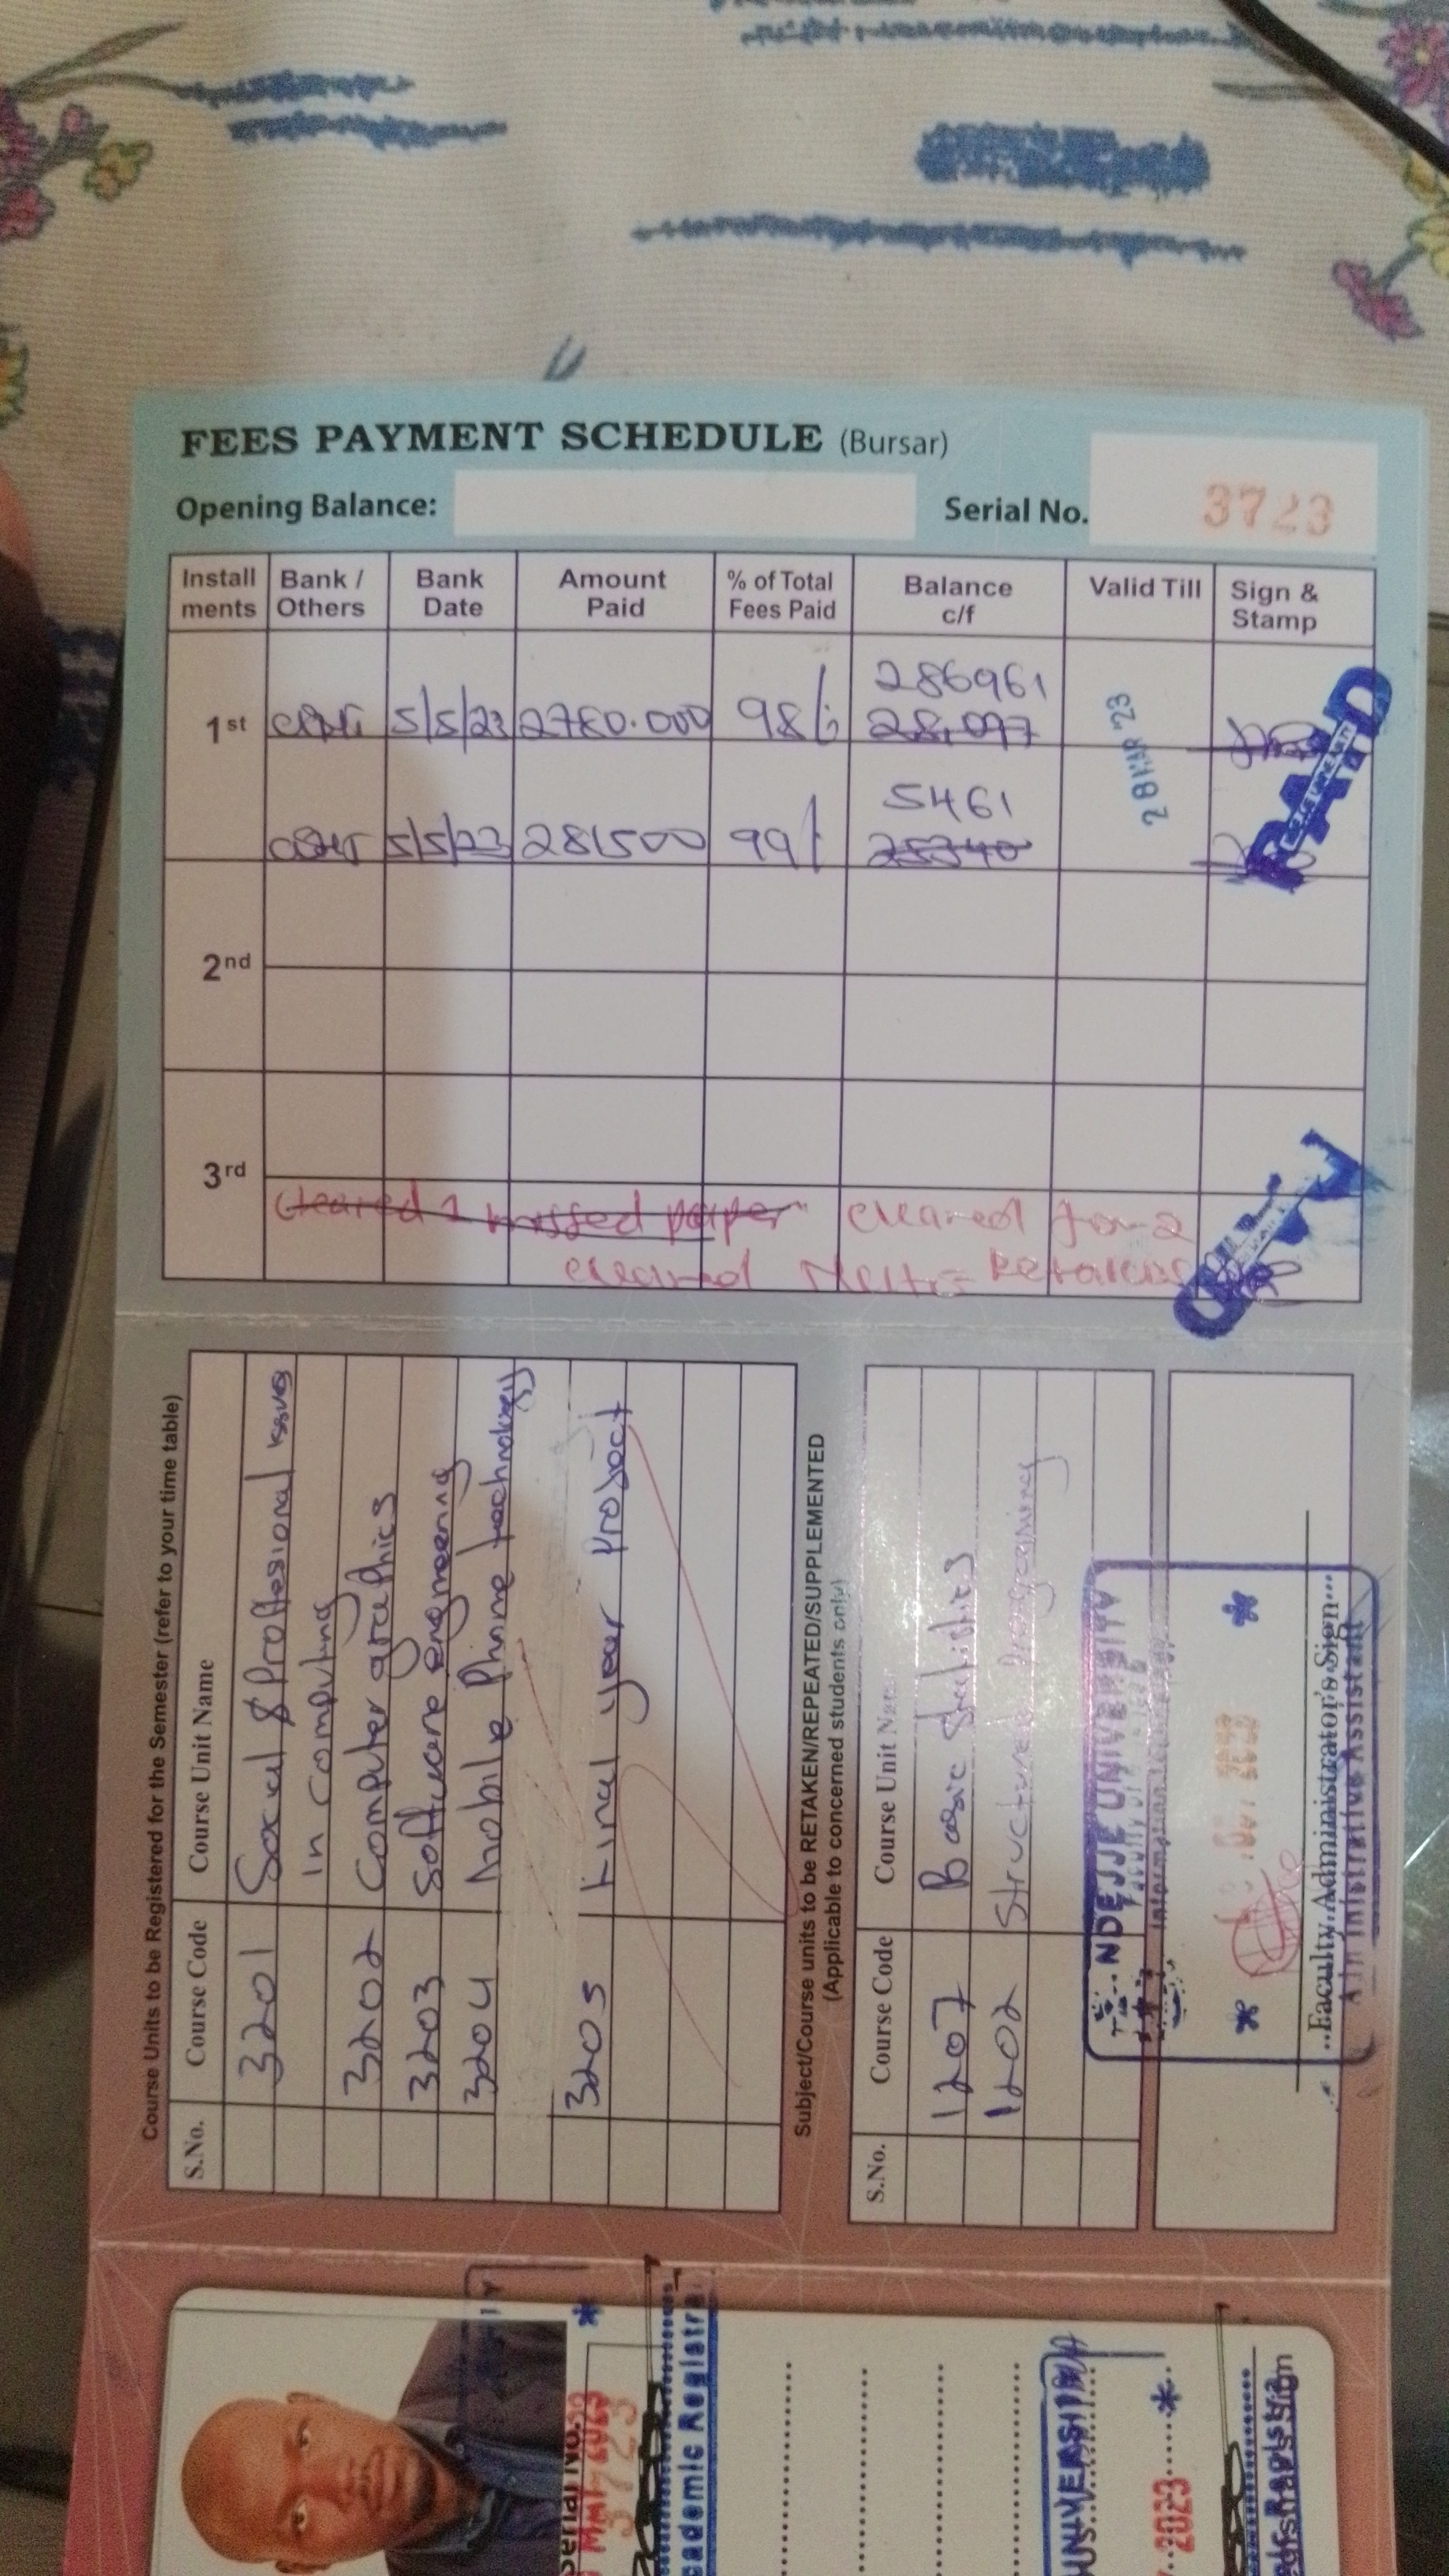 FEES PAYMENT SCHEDULE (Bursar)
Opening Balance:
Serial No. 3723
Install ments
Bank / Others
Bank Date
Amount Paid
% of Total Fees Paid
Balance c/f
Valid Till
Sign & Stamp
286961
1st 5/5/23 2780.000 98% 28,097
28 MAR '23
PAID
5461
5/5/23 281500 99% 25340
2nd
3rd
Cleared 1 missed paper cleared for 2
cleared Retakes
Course Units to be Registered for the Semester (refer to your time table)
S.No. Course Code Course Unit Name
3201 Social & Proffessional issues
in computing
3202 Computer graphics
3203 Software engineering
3204 Mobile Phone technology
3205 Final year Project
Subject/Course units to be RETAKEN/REPEATED/SUPPLEMENTED
(Applicable to concerned students only)
S.No. Course Code Course Unit
1207 Basic Statistics
1202 Structured Programing
NDEJJE UNIVERSITY
Faculty Administrator's Sign
Administrative Assistant
Serial No.
3723
Academic Registrar
UNIVERSITY
2023